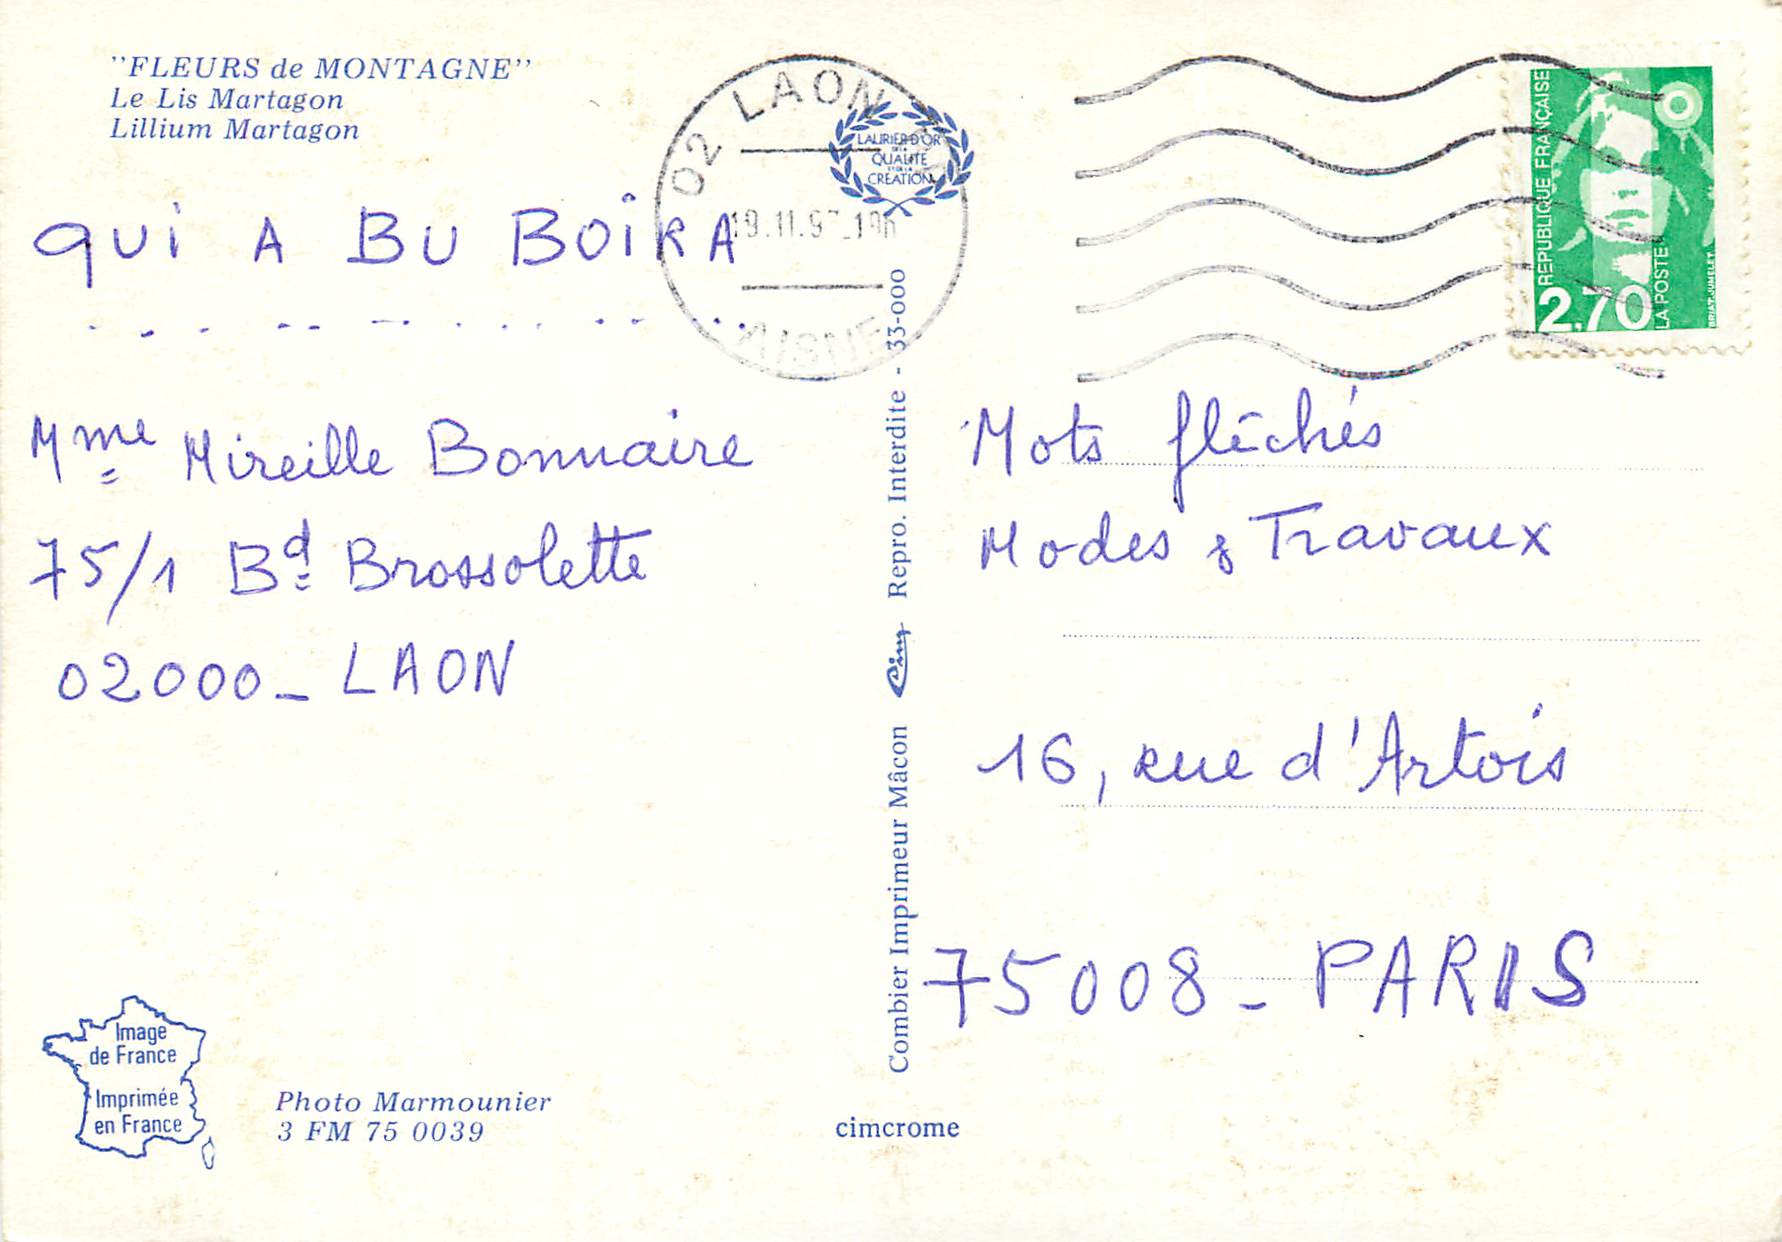 "FLEURS de MONTAGNE"
Le Lis Martagon
Lillium Martagon
QUI A BU BOIRA
Mme Mireille Bonnaire
75/1 Bd Brossolette
02000 - LAON
Image
de France
Imprimée
en France
Photo Marmounier
3 FM 75 0039
02 LAON
AISNE
LAURIER D'OR
DE LA
QUALITE
ET DE LA
CREATION
Combier Imprimeur Mâcon Cim Repro. Interdite - 33-000
cimcrome
REPUBLIQUE FRANÇAISE
2,70
LA POSTE
BRIAT-JUMELET
Mots fléchés
Modes & Travaux
16, rue d'Artois
75008 - PARIS